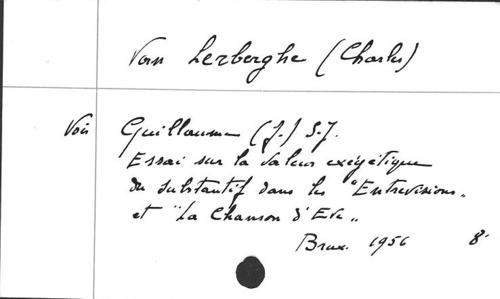 Van Lerberghe (Charles)
Voir Guillaume (J.) S.J.
Essai sur la valeur exégétique
du substantif dans les "Entrevisions"
et "La Chanson d'Eve"
Brux. 1956 8°